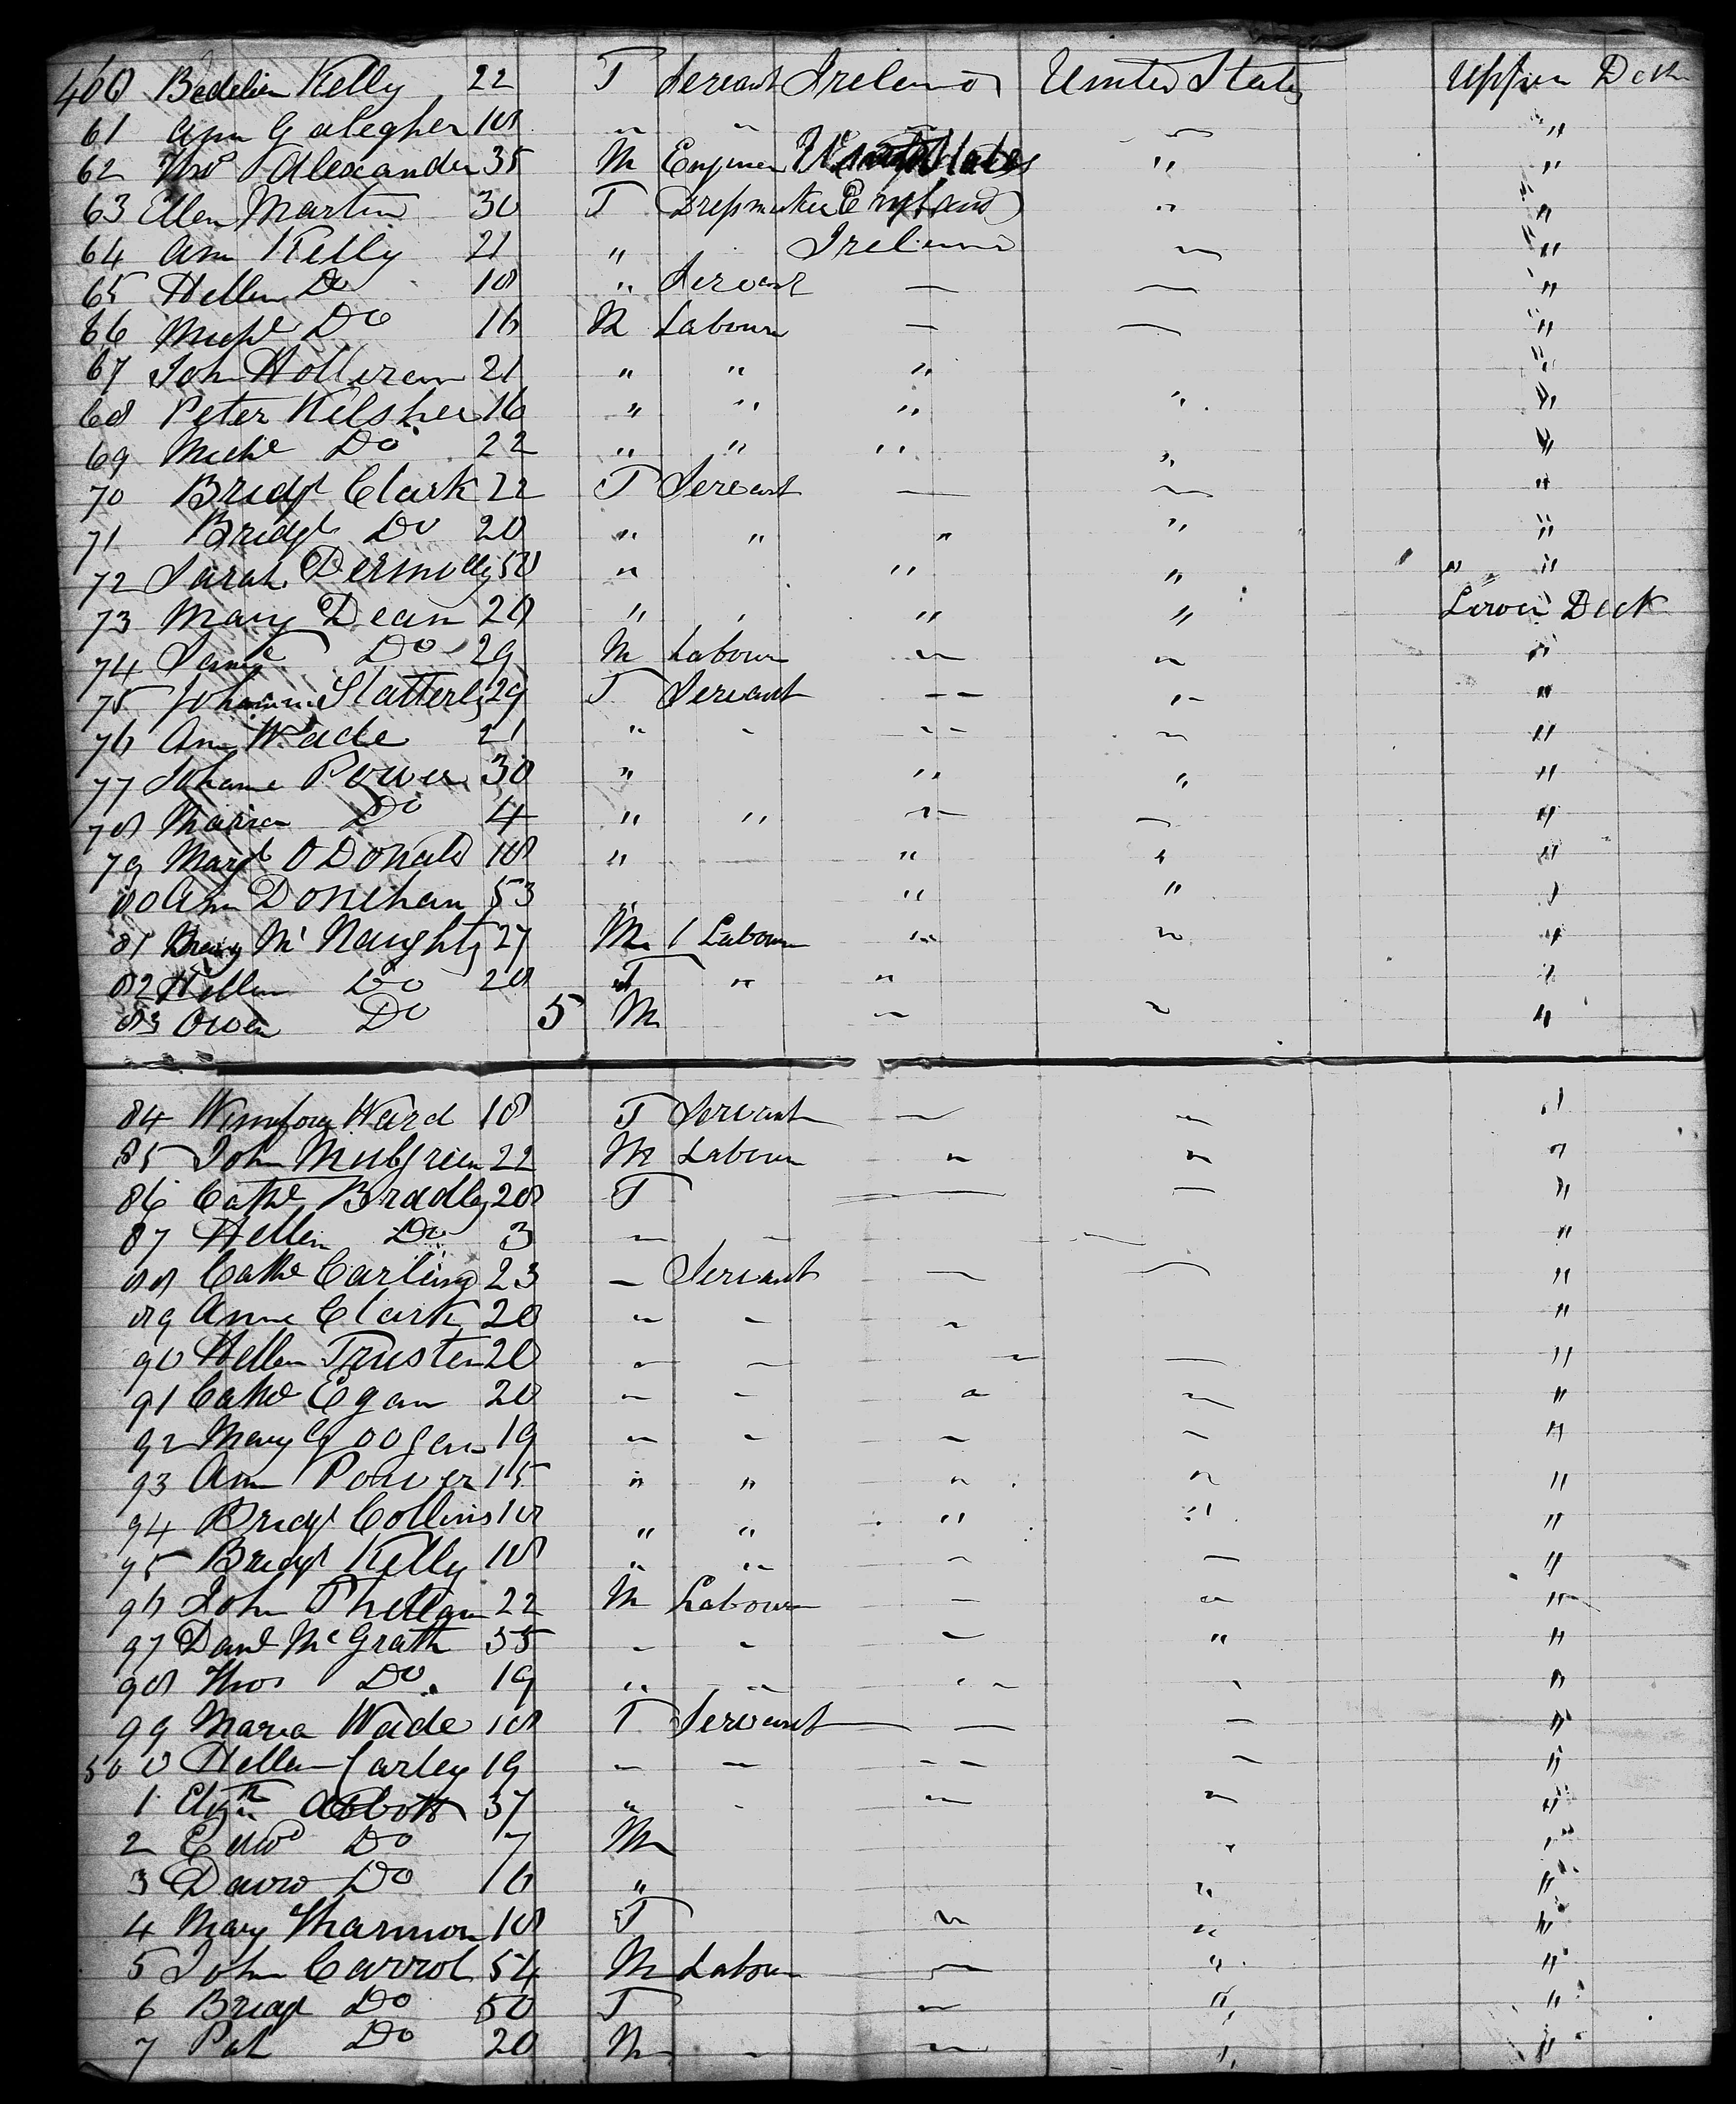 460 Bedelia Kelly 22 F Servant Ireland United States Upper Deck
61 Ann Galegher 18 " " " "
62 Thos Alexander 35 M Engineer United States " "
63 Ellen Martin 30 F Dressmaker England " "
64 Ann Kelly 21 " Ireland " "
65 Hellen Do 18 " Servant — — "
66 Michl Do 16 M Labourer — — "
67 John Holleran 21 " " " "
68 Peter Kelsher 16 " " " " "
69 Michl Do 22 " " " " "
70 Bridgt Clark 22 F Servant — — "
71 Bridgt Do 20 " " " " "
72 Sarah 50 " " " " "
73 Mary Dean 20 " " " " Lower Deck
74 Do 29 M Labour " " "
75 Johanna Slatterly 29 F Servant " " "
76 Ann Wade 21 " " " " "
77 Johanna Power 30 " " " "
78 Do 4 " " " — "
79 Margt O Donald 18 " " " "
80 Ann Donehan 53 " " " "
81 Mc Naughty 27 M Labour " " "
82 Hellen Do 28 F " " "
83 Owen Do 5 M " " "
84 Ward 18 F Servant — " "
85 John Mulgreen 22 M Labour " " "
86 Cathe Bradley 28 F — — "
87 Hellen Do 3 — - — "
88 Cathe Carling 23 — Servant — — "
89 Anne Clark 20 " - " "
90 Hellen Trusten 20 " — — — "
91 Cathe Egan 20 " - " " "
92 Mary Googen 19 " - " " "
93 Ann Power 15 " " " " "
94 Bridgt Collins 18 " " " " "
95 Bridgt Kelly 18 " " — — "
96 John Phelan 22 M Labour — " "
97 Danl McGrath 35 - - — " "
98 Thos Do 19 " " " " "
99 Maria Wade 18 F Servant — — "
500 Hellen Carley 19 — — — — "
1 Elizth Abbott 37 " - " " "
2 Edwd Do 7 M " "
3 David Do 16 " " "
4 Mary 18 F " " "
5 John Carrol 54 M Labour — " "
6 Bridgt Do 50 F " " "
7 Pat Do 20 M - " " "